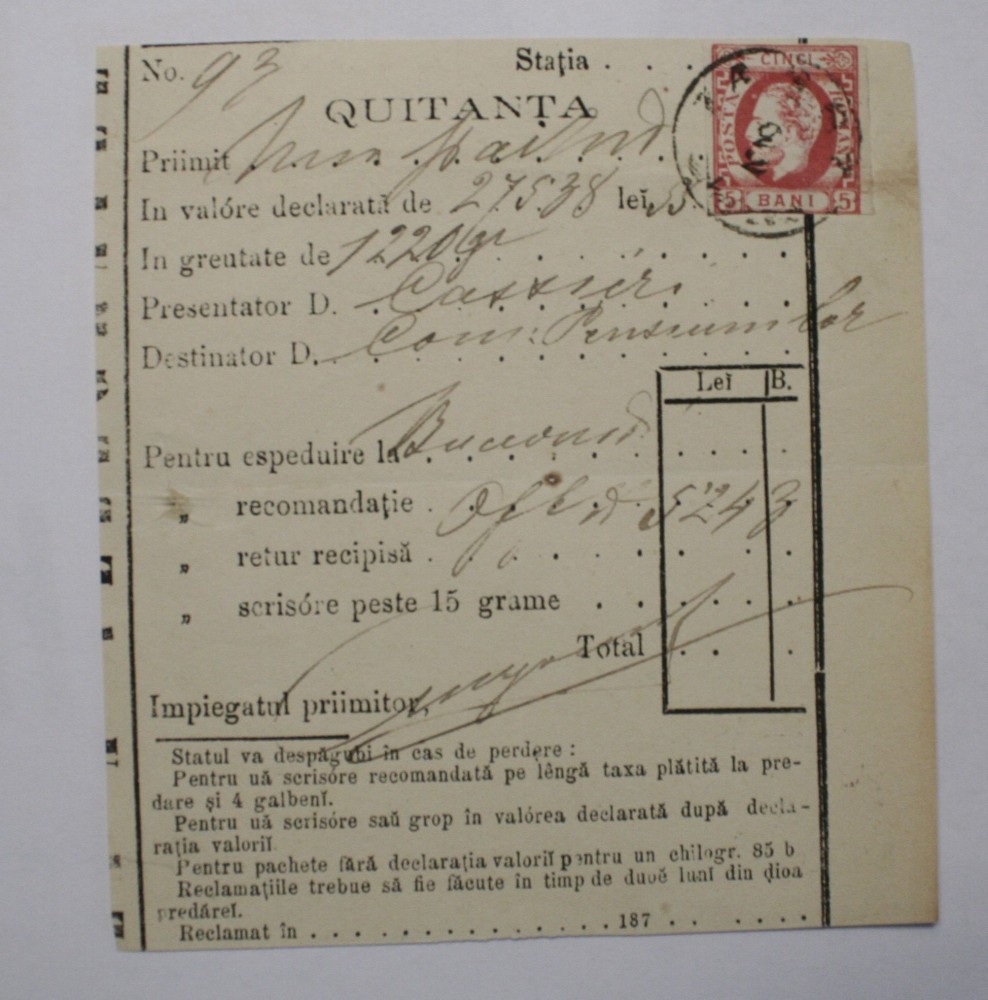 No. 93 Stația . . . .
CINCI
POSTA ROMANA
5 BANI 5
QUITANȚA
Priimit
In valóre declarată de 27538 leĭ 55
In greutate de 1220 gr
Presentator D. Cassieri
Destinator D. Com: Pensiunilor
Leĭ B.
Pentru espeduire la
„ recomandație . Of 5243
„ retur recipisă .
„ scrisóre peste 15 grame . . . . .
Total . . .
Impiegatul priimitor,
Statul va despăgubi în cas de perdere :
Pentru uă scrisóre recomandată pe lêngă taxa plătită la pre-
dare și 4 galbenĭ.
Pentru uă scrisóre saŭ grop în valórea declarată după decla-
rația valoriĭ
Pentru pachete fără declarația valoriĭ pentru un chilogr. 85 b
Reclamațiile trebue să fie făcute în timp de două lunĭ din dioa
predăreĭ.
Reclamat în . . . . . . . . . . . . . . 187 . . . . . .